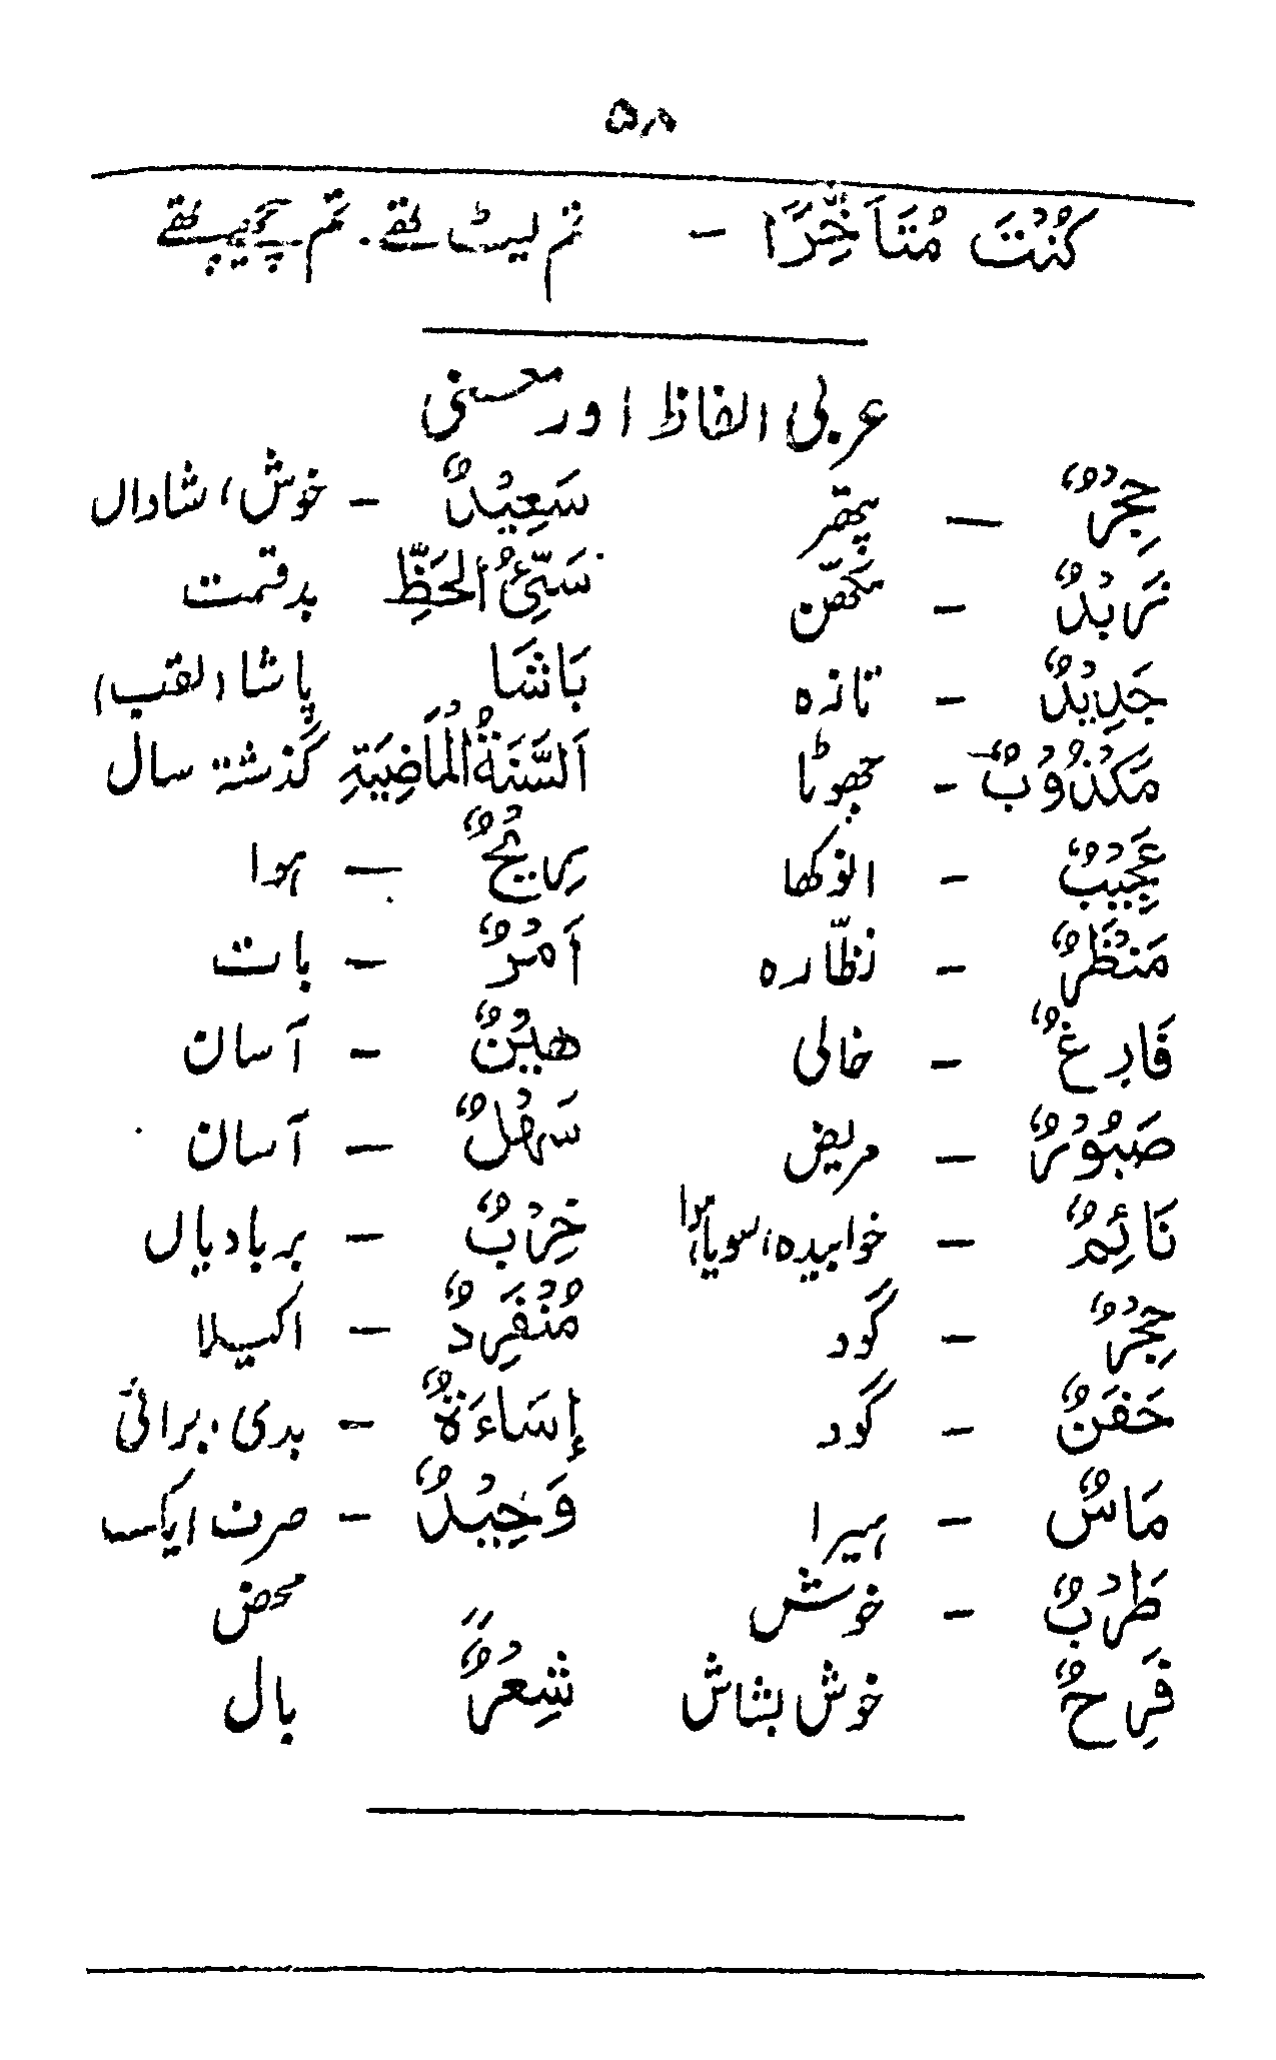 ۵۸
كُنْتَ مُتَاَخِّرًا - تم لیٹ تھے. تم پیچھے تھے
عربی الفاظ اور معنی
حِجْرٌ — پتھر سَعِیْدٌ - خوش، شاداں
زَبْدٌ - مکھّن سَیِّئُ الحَظِّ بدقسمت
جَدِیْدٌ - تازہ بَاشَا پاشا (لقب)
مَکْذُوْبٌ - جھوٹا اَلسَّنَةُ الْمَاضِیَةِ گذشتہ سال
عَجِیْبٌ - انوکھا رِیْحٌ — ہوا
مَنْظَرٌ - نظّارہ اَمْرٌ - بات
فَارِغٌ - خالی هیْنٌ - آسان
صَبُوْرٌ - مریض سَهْلٌ - آسان
نَائِمٌ - خوابیدہ، سویا ہوا خِرْبٌ - بربادیاں
حِجْرٌ - گود مُنْفَرِدٌ - اکیلا
حَفَنٌ - گود إسَاءَةٌ - بدی، برائی
مَاسٌ - ہیرا وَحِیْدٌ - صرف ایک
طَرْبٌ - خوش محض
فَرِحٌ خوش بشاش شِعْرٌ بال